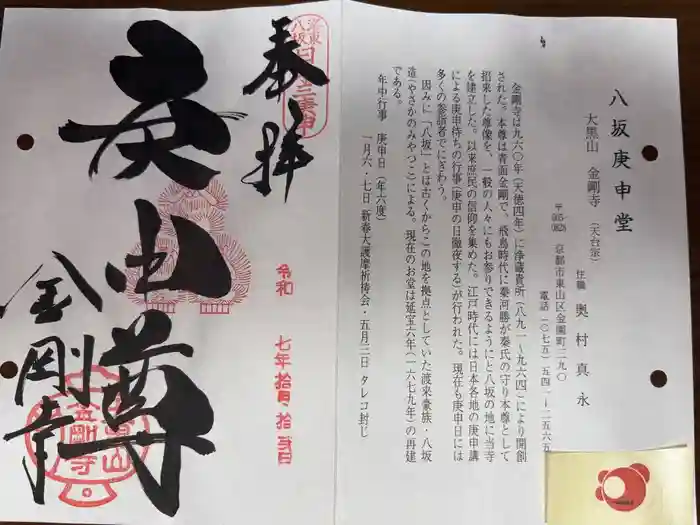 八坂庚申堂
大黒山 金剛寺 (天台宗)
住職 奥村真永
京都市東山区金園町三九〇
電話(〇七五)五四一ー二五六五
金剛寺は九六〇年(天徳四年)に浄蔵貴所(八九一ー九六四)により開創
された。本尊は青面金剛で、飛鳥時代に秦河勝が秦氏の守り本尊として
招来した尊像を、一般の人々にもお参りできるようにと八坂の地に当寺
を建立した。以来庶民の信仰を集めた。江戸時代には日本各地の庚申講
による庚申待ちの行事(庚申の日徹夜する)が行われた。現在も庚申日には
多くの参詣者でにぎわう。
因みに「八坂」とは古くからこの地を拠点としていた渡来豪族・八坂
造(やさかのみやつこ)による。現在のお堂は延宝六年(一六七九年)の再建
である。
年中行事 庚申日(年六度)
一月六・七日 新春大護摩祈祷会・五月三日 タレコ封じ
奉拝
庚申尊
金剛寺
令和 七年拾月